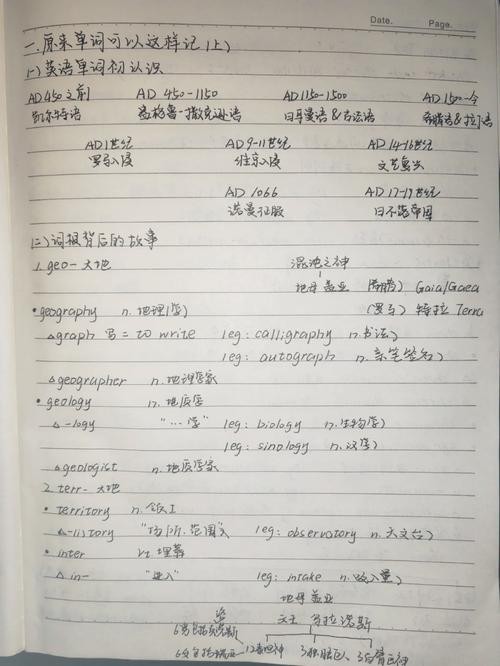 Date. Page.
一.原来单词可以这样记(上)
(一)英语单词初认识
AD 450之前 AD 450-1150 AD 1150-1500 AD 1500-今
凯尔特语 盎格鲁-撒克逊语 日耳曼语&法语 希腊语&拉丁语
AD 1世纪 AD 9-11世纪 AD 14-16世纪
罗马入侵 维京入侵 文艺复兴
AD 1066 AD 17-19世纪
诺曼征服 日不落帝国
(二)词根背后的故事
1. geo- 大地 混沌之神
地母盖亚 (希腊) Gaia/Gaea
• geography n.地理(学) (罗马) 特拉 Terra
△graph 写 = to write (eg: calligraphy n.书法)
(eg: autograph n.亲笔签名)
△geographer n.地理学家
• geology n.地质学
△ -logy "…学" (eg: biology n.生物学)
(eg: sinology n.汉学)
△geologist n.地质学家
2. terr- 大地
• territory n.领土
△-(i)tory "场所.范围" (eg: observatory n.天文台)
• inter vt.埋葬
△ in- "进入" (eg: intake n.吸入量)
地母盖亚
天王 乌拉诺斯
12泰坦神 3独眼巨人 3百臂巨神